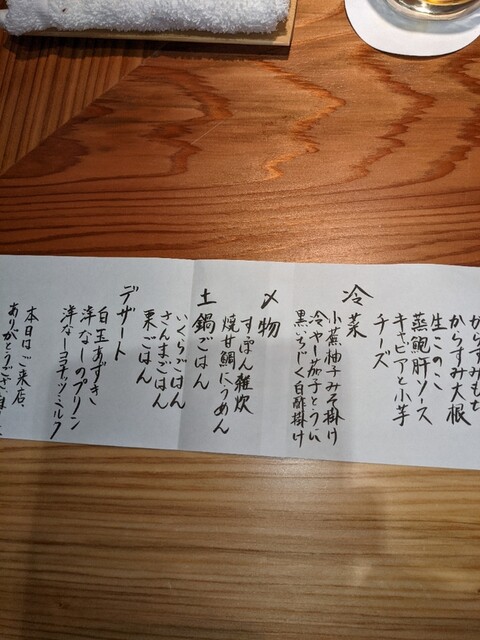 からすみもち
からすみ大根
生このこ
蒸鮑肝ソース
キャビアと小芋
チーズ
冷菜
小蕪柚子みそ掛け
冷やし茄子とうに
黒いちじく白酢掛け
〆物
すっぽん雑炊
焼甘鯛にうめん
土鍋ごはん
いくらごはん
さんまごはん
栗ごはん
デザート
白玉あずき
洋なしのプリン
洋なしココナッツミルク
本日はご来店、
ありがとうござ